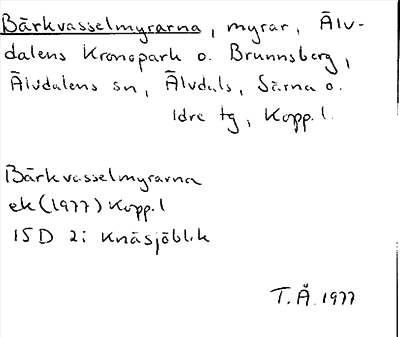 Bärkvasselmyrarna, myrar, Älv-
dalens Kronopark o. Brunnsberg,
Älvdalens sn, Älvdals, Särna o.
Idre tg, Kopp. l.
Bärkvasselmyrarna
ek (1977) Kopp. l
15D 2i Knäsjöblik
T. Å. 1977